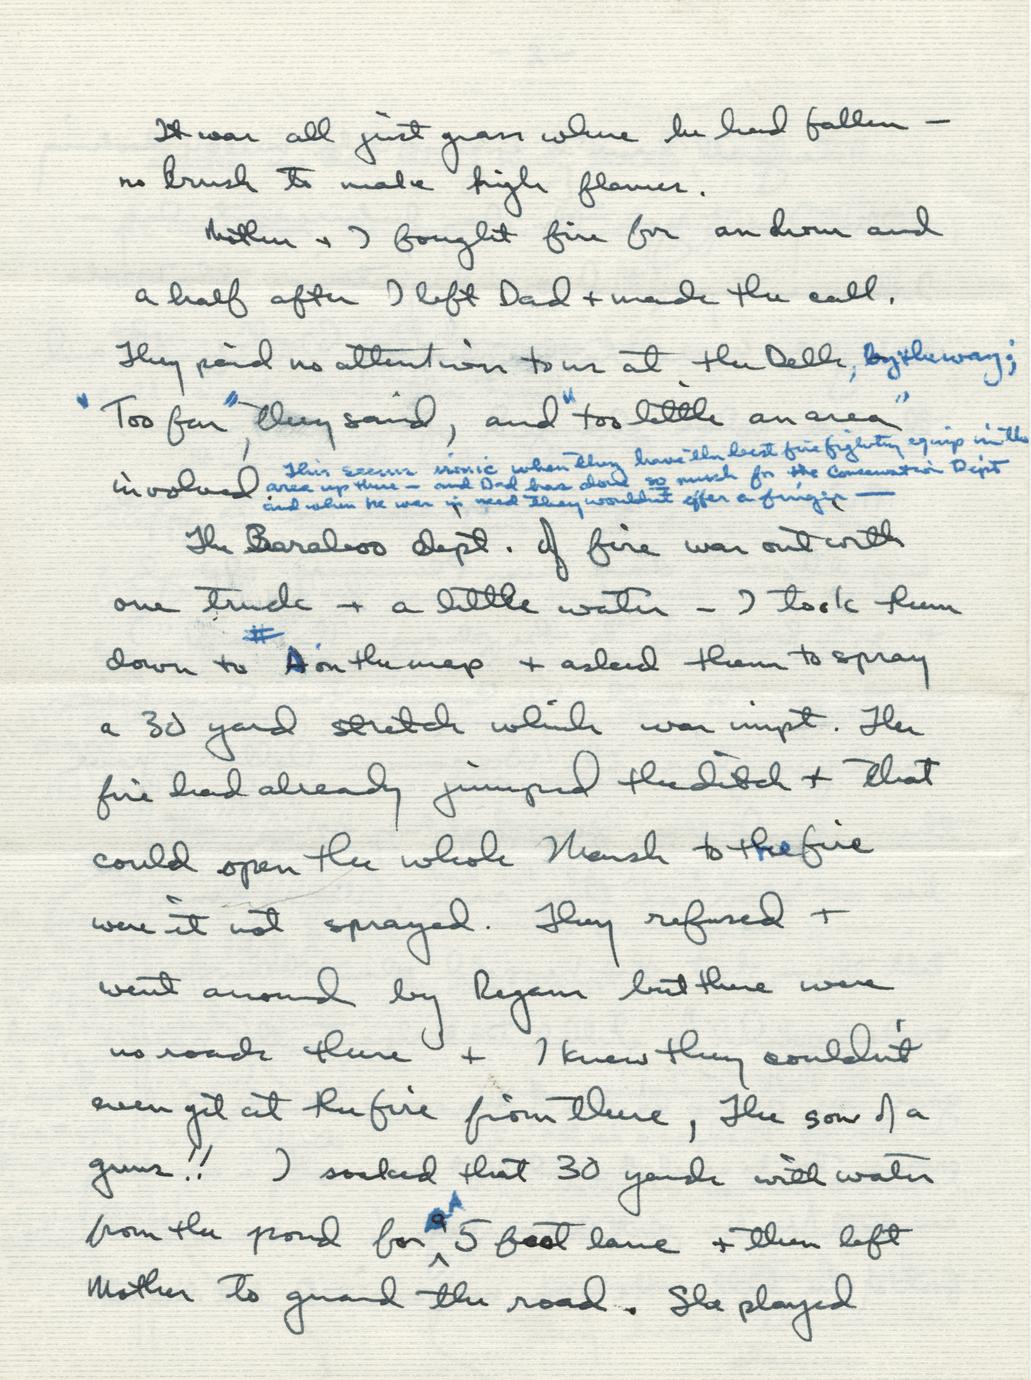 It was all just grass where he had fallen —
no brush to make high flames.
Mother + I fought fire for an hour and
a half after I left Dad + made the call.
They paid no attention to us at the Dells, by the way;
"Too far", they said, and "too little an area"
involved.
This seems ironic when they have the best fire fighting equip in the
area up there — and Dad has done so much for the Conservation Dept
and when he was in need they wouldn't offer a finger —
The Baraboo dept. of fire was out with
one truck + a little water — I took them
down to # A on the map + asked them to spray
a 30 yard stretch which was impt. The
fire had already jumped the ditch + that
could open the whole Marsh to the fire
were it not sprayed. They refused +
went around by Regans but there were
no roads there + I knew they couldn't
even get at the fire from there, The sons of a
guns!! I soaked that 30 yards with water
from the pond for a 5 foot lane + then left
Mother to guard the road. She played